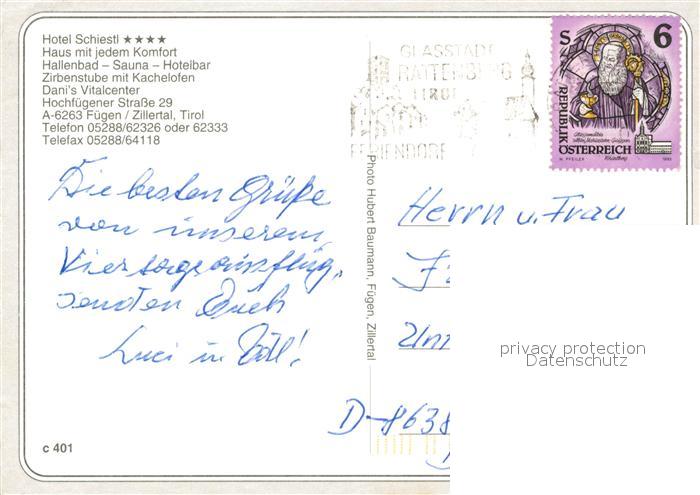 Hotel Schiestl ★★★★
Haus mit jedem Komfort
Hallenbad – Sauna – Hotelbar
Zirbenstube mit Kachelofen
Dani's Vitalcenter
Hochfügener Straße 29
A-6263 Fügen / Zillertal, Tirol
Telefon 05288/62326 oder 62333
Telefax 05288/64118
GLASSTADT
RATTENBERG
TIROL
FERIENDORF
S 6
REPUBLIK
ÖSTERREICH
Die besten Grüße
von unserem
Viertagesausflug,
senden Euch
Luci u.
Photo Hubert Baumann, Fügen, Zillertal
Herrn u. Frau
D-8638
privacy protection
Datenschutz
c 401